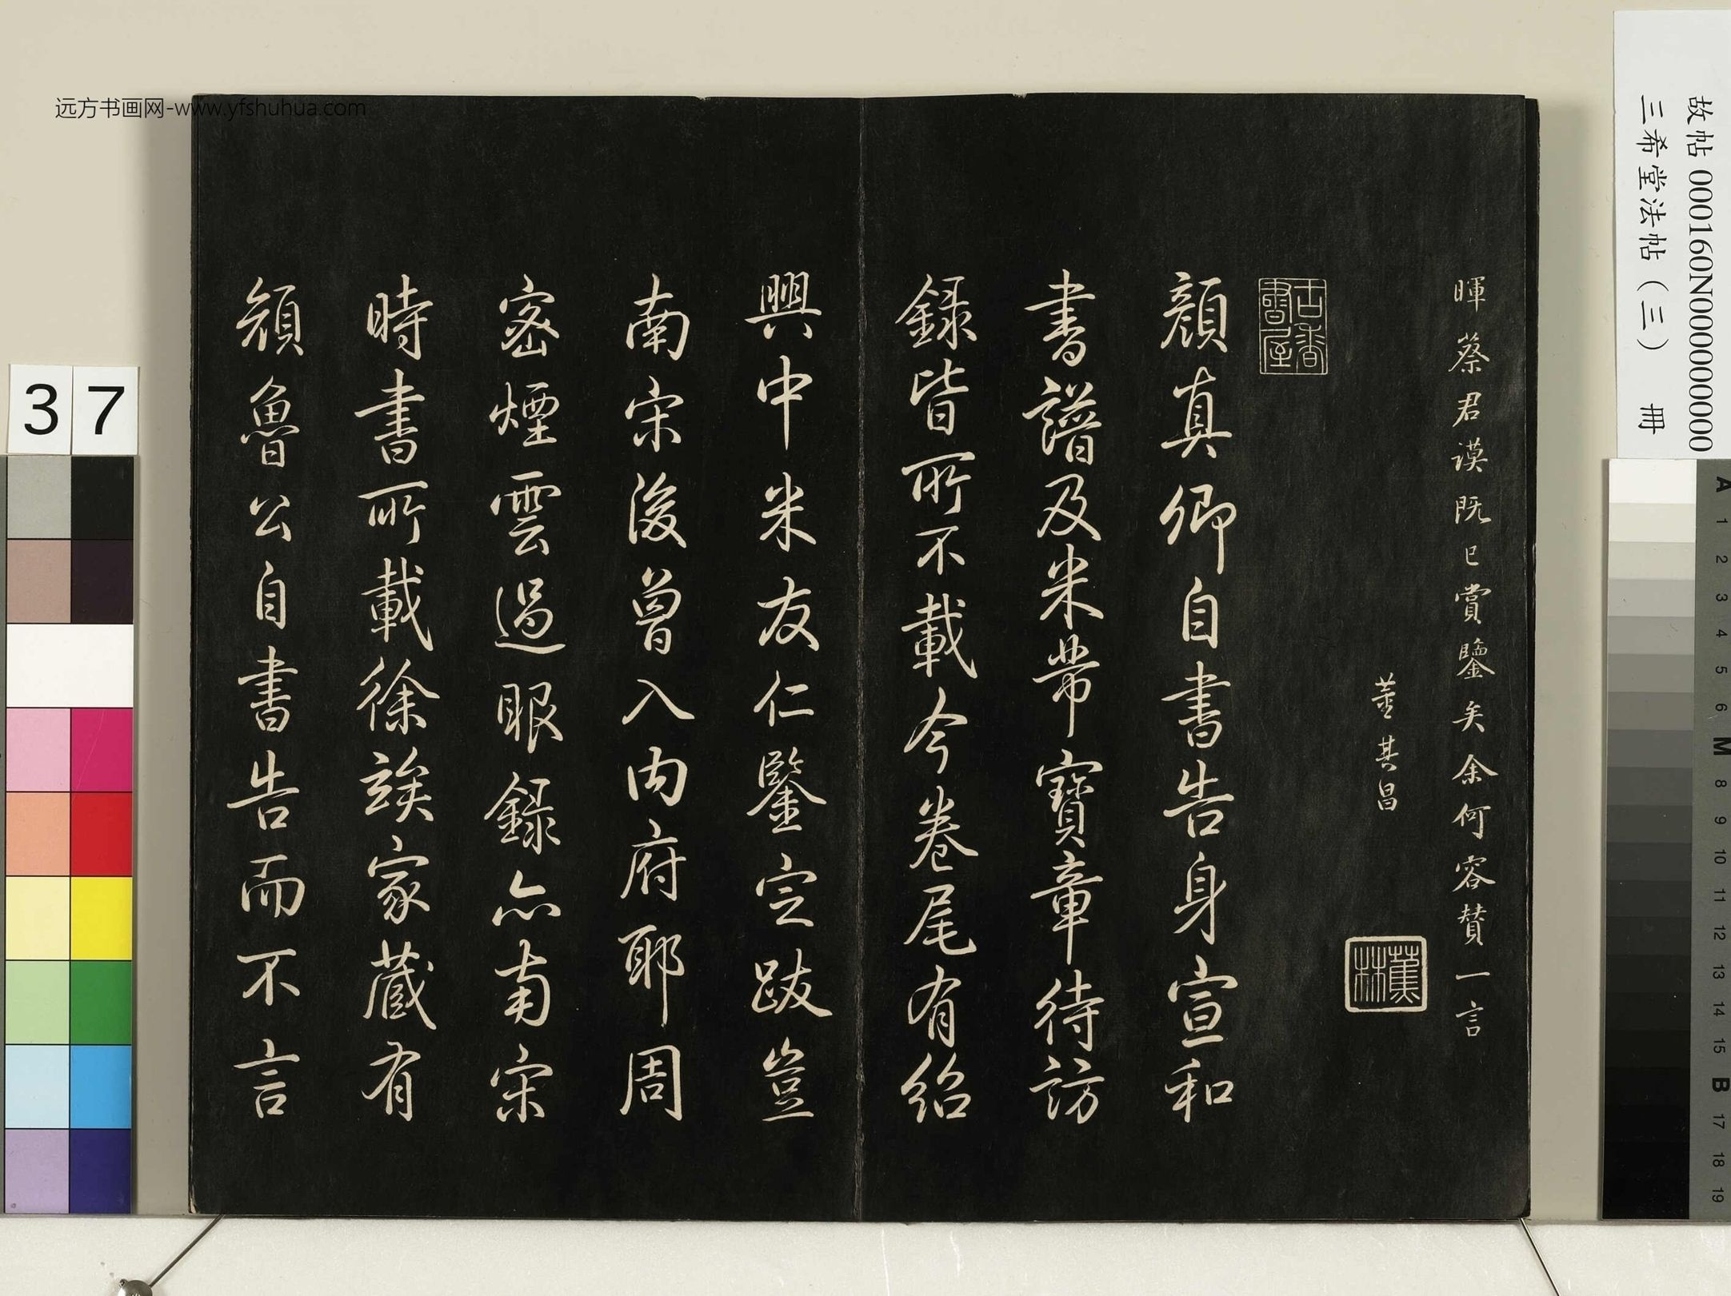 暉蔡君謨既已賞鑒矣余何容贊一言
董其昌
蕉林
古香書屋
顏真卿自書告身宣和
書譜及米芾寶章待訪
錄皆所不載今卷尾有紹
興中米友仁鑒定跋豈
南宋後曾入內府耶周
密煙雲過眼錄亦南宋
時書所載徐誒家藏有
顏魯公自書告而不言
故帖 000160N000000000
三希堂法帖（三） 冊
远方书画网-www.yfshuhua.com
37
A 1 2 3 4 5 6 M 8 9 10 11 12 13 14 15 B 17 18 19